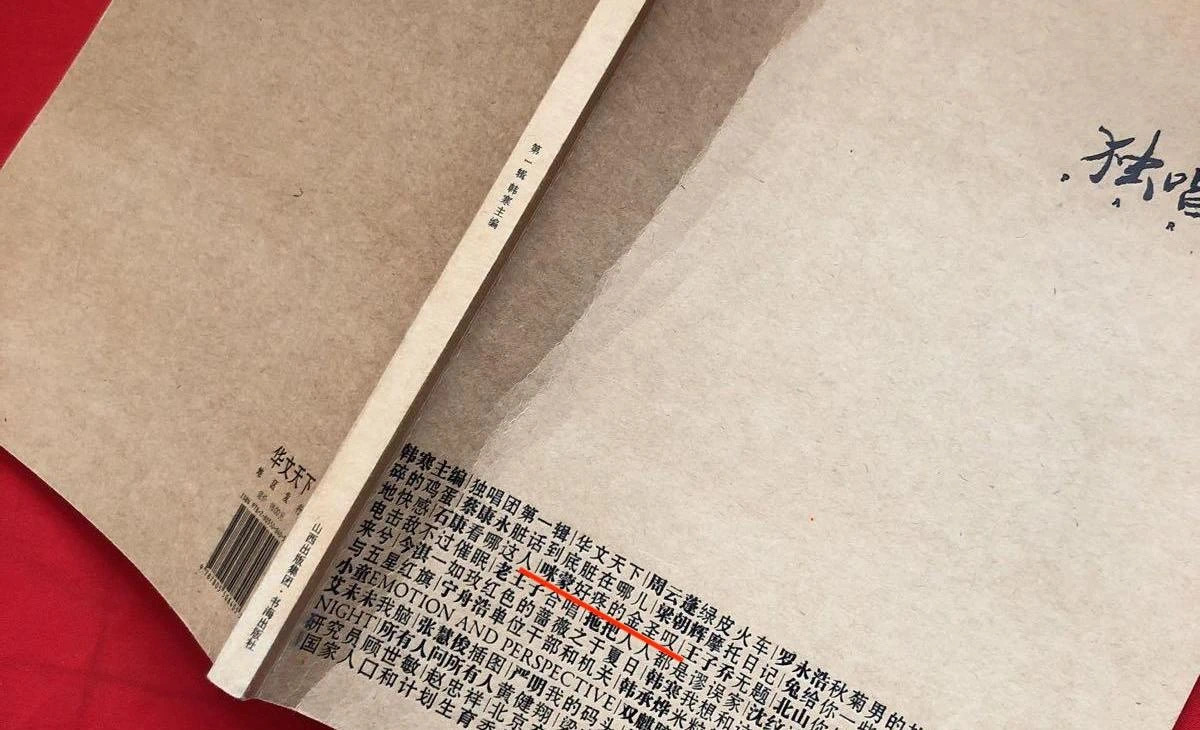 独唱
第一辑 韩寒主编
韩寒主编|独唱团第一辑|华文天下|周云蓬绿皮火车|罗永浩秋菊男的故
碎的鸡蛋|蔡康永脏话到底脏在哪儿|梁朝辉摩托日记|兔给你一些
地快感|石康看哪这人|咪蒙好疼的金圣叹|王子乔无题|北山你
电击敌不过催眠|老王子合唱|拖把人人都是谬误家|沈
来兮|今淇一如玫红色的蔷薇之于夏日|韩寒我想和这
与五星红旗|宁舟浩单位干部和机关|韩承烨米粒
小童EMOTION AND PERSPECTIVE|双麒
艾未未我脑|张慧俊插图|严明我的码头
NIGHT|所有人问所有人黄健翔|梁
研究员顾世敏|赵忠祥|北京
国家人口和计划生育委
华文天下
山西出版集团·书海出版社